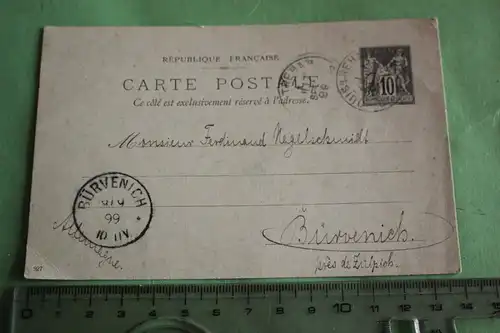 RÉPUBLIQUE FRANÇAISE
CARTE POSTALE
Ce côté est exclusivement réservé à l'adresse.
10
Monsieur Ferdinand Nagelschmidt
BÜRVENICH
99
Allemagne.
Bürvenich.
près de Zülpich.
0 1 2 3 4 5 6 7 8 9 10 11 12 13